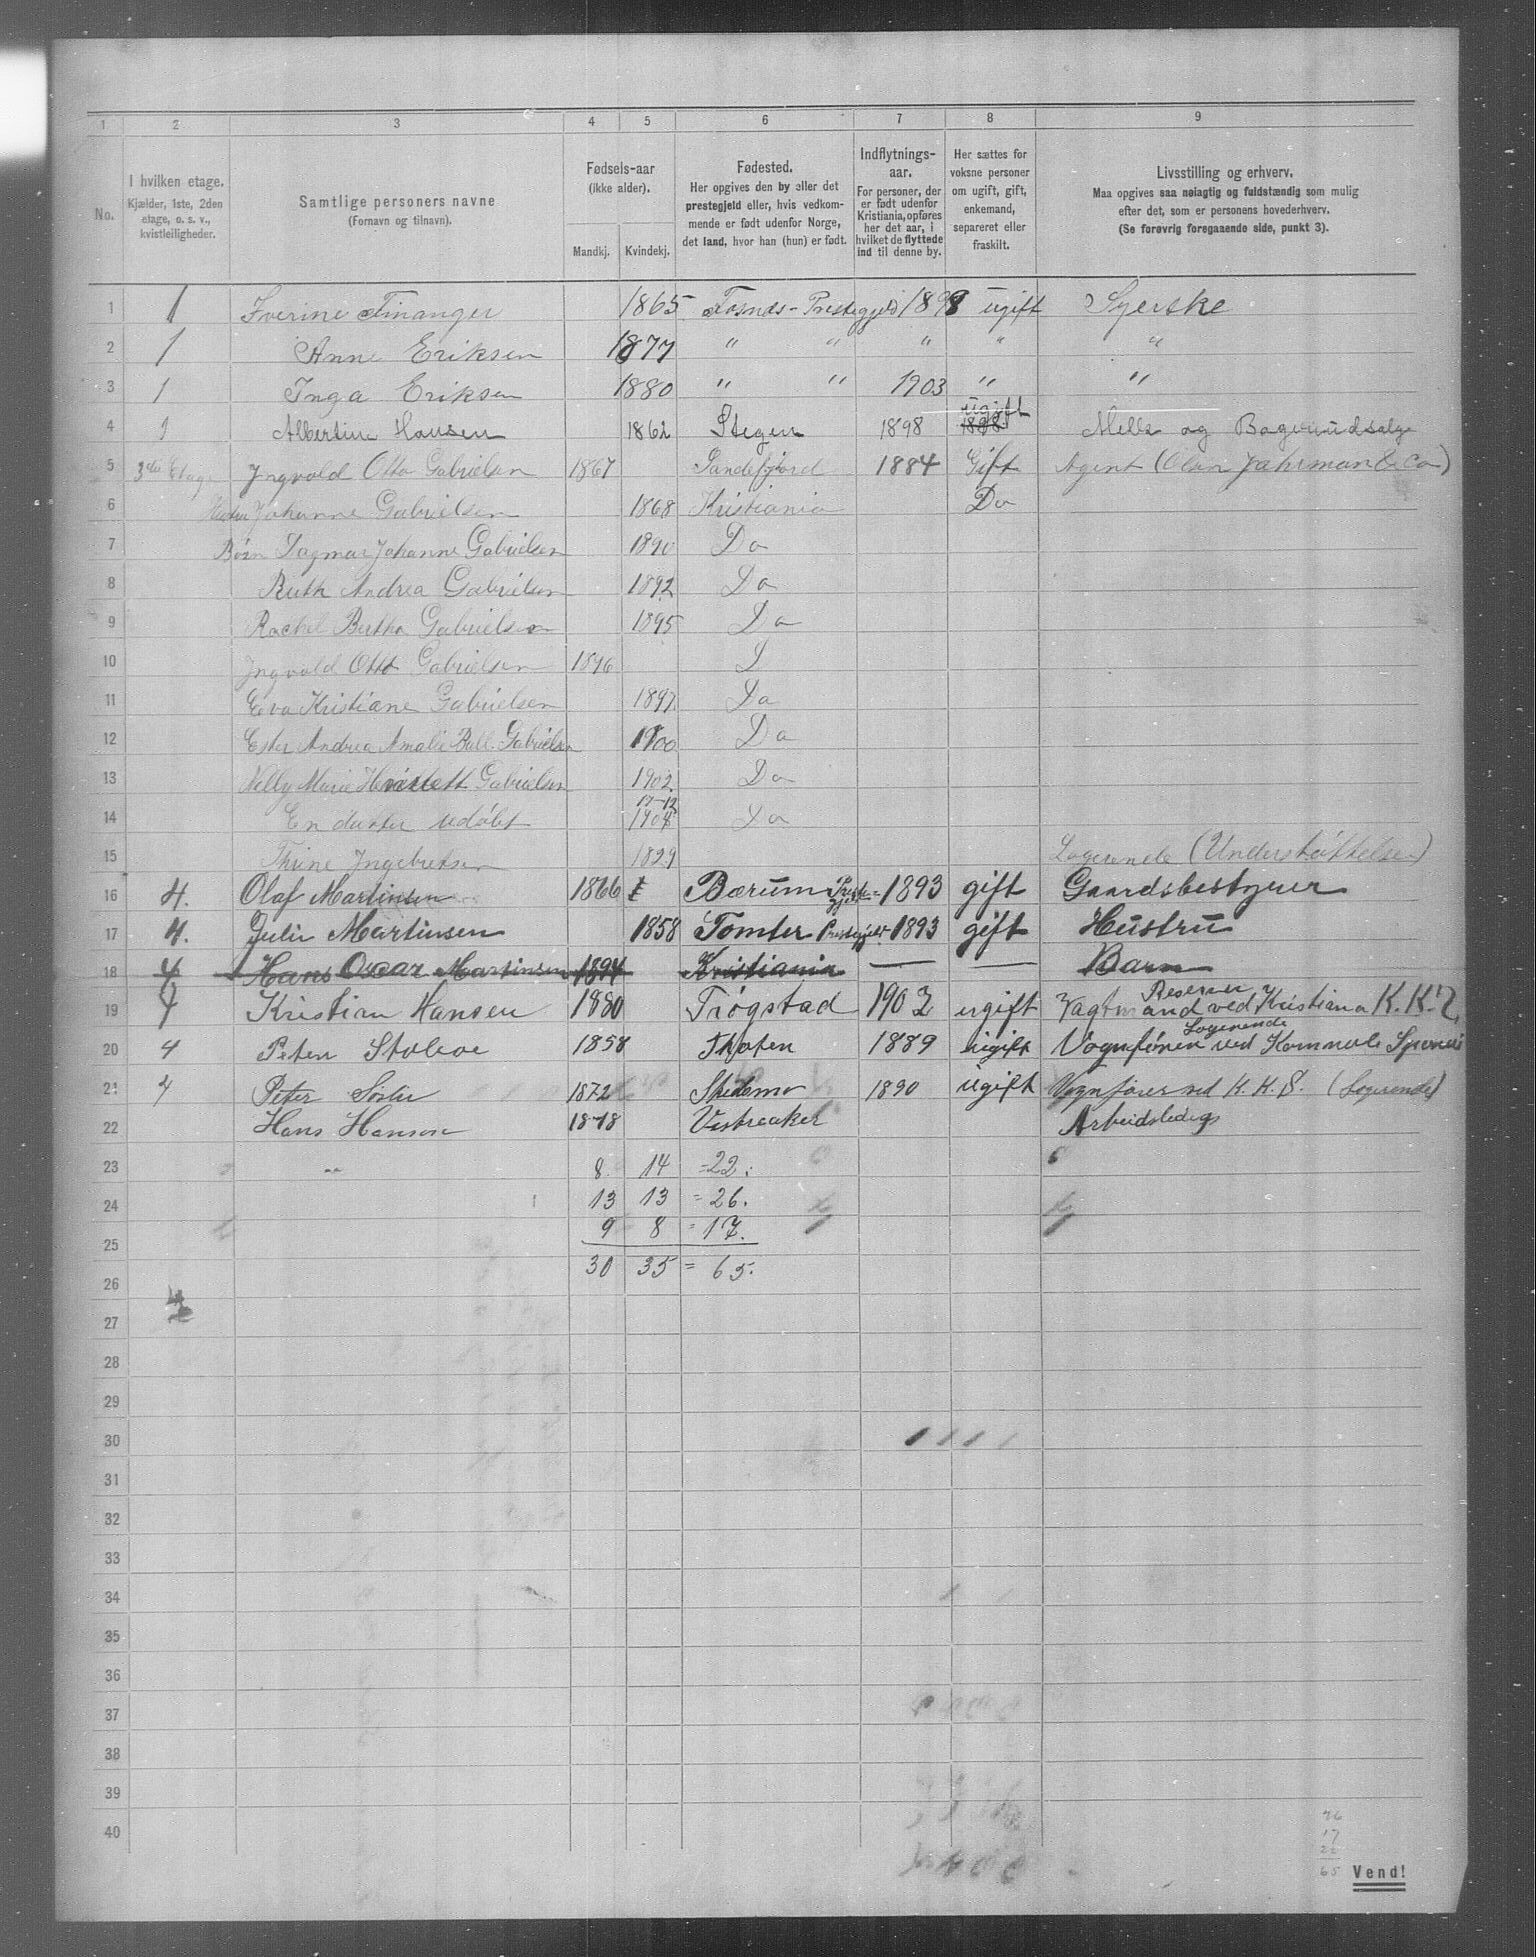 1 2 3 4 5 6 7 8 9
No.
I hvilken etage.
Kjælder, 1ste, 2den
etage, o. s. v.,
kvistleiligheder.
Samtlige personers navne
(Fornavn og tilnavn).
Fødsels-aar
(ikke alder).
Mandkj. Kvindekj.
Fødested.
Her opgives den by eller det
prestegjeld eller, hvis vedkom-
mende er født udenfor Norge,
det land, hvor han (hun) er født.
Indflytnings-
aar.
For personer, der
er født udenfor
Kristiania, opføres
her det aar, i
hvilket de flyttede
ind til denne by.
Her sættes for
voksne personer
om ugift, gift,
enkemand,
separeret eller
fraskilt.
Livsstilling og erhverv.
Maa opgives saa nøiagtig og fuldstændig som mulig
efter det, som er personens hovederhverv.
(Se forøvrig foregaaende side, punkt 3).
1 1 Iverine Finanger 1865 Fosnes-Prestegjeld 1898 ugift Syerske
2 1 Anne Eriksen 1877 " " " " "
3 1 Inga Eriksen 1880 " " 1903 " "
4 1 Albertine Hansen 1862 Stegen 1898 ugift 1898 og
5 3die Etag Ingvald Otto Gabrielsen 1867 Sandefjord 1884 Gift Agent (Olsen Jahrman & Co)
6 Hustru Johanne Gabrielsen 1868 Kristiania Do
7 Børn Dagmar Johanne Gabrielsen 1890 Do
8 Ruth Andrea Gabrielsen 1892 Do
9 Rachel Bertha Gabrielsen 1895 Do
10 Ingvald Otto Gabrielsen 1896 D
11 Eva Kristiane Gabrielsen 1897 Do
12 Ester Andrea Amalie Gabrielsen 1900 Do
13 Nelly Marie Gabrielsen 1902 Do
14 En datter udøbt 17-12 1904 Do
15 Thrine Ingebretsen 1829 Logerende (Understøttelse)
16 4. Olaf Martinsen 1866 Bærum Preste-gjeld 1893 gift Gaardsbestyrer
17 4. Julie Martinsen 1858 Tomter Prestegjeld 1893 gift Hustru
18 4 Hans Oscar Martinsen 1894 Kristiania — — Barn
19 4 Kristian Hansen 1880 Trøgstad 1902 ugift Reserve Vagtmand ved Kristiania K.K.
20 4 Peter 1858 Thoten 1889 ugift Logerende Vognfører ved
21 4 Peter 1872 Skedsmo 1890 ugift Vognfører ved K. K. S. (Logerende)
22 Hans Hanson 1878 Vestreaker Arbeidsledig
23 " 8 14 =22.
24 13 13 = 26.
25 9 8 = 17.
26 30 35 = 65.
27
28
29
30
31
32
33
34
35
36
37
38
39
40
26
17
22
65
Vend!